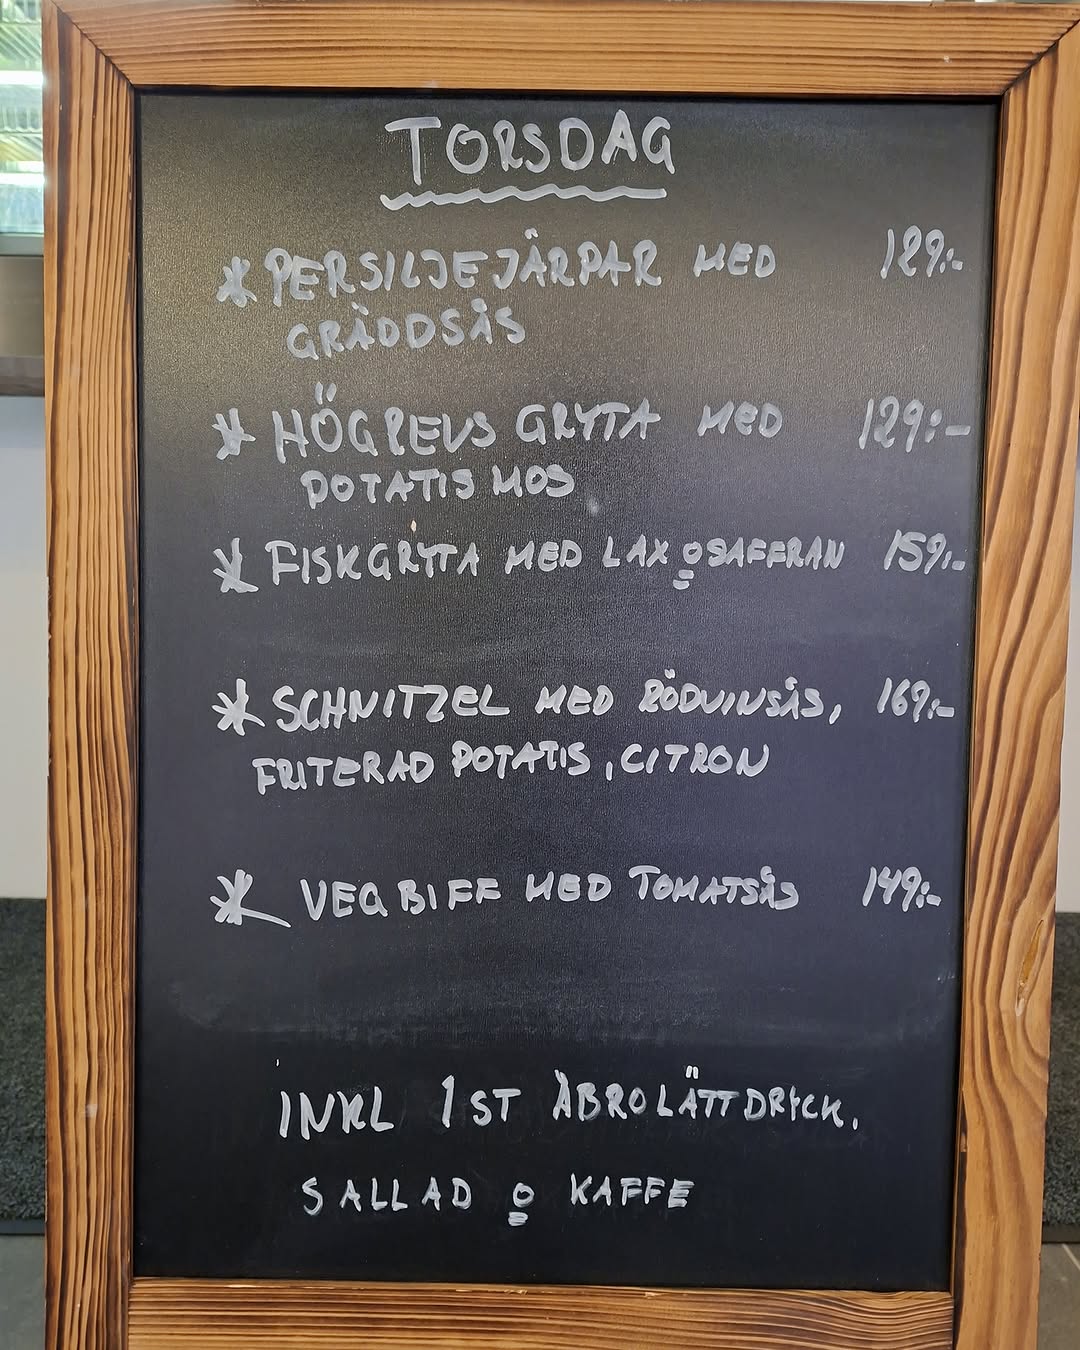 TORSDAG
* PERSILJEJÄRPAR MED 129:-
GRÄDDSÅS
* HÖGREVS GRYTA MED 129:-
POTATISMOS
* FISKGRYTA MED LAX o SAFFRAN 159:-
* SCHNITZEL MED RÖDVINSÅS, 169:-
FRITERAD POTATIS, CITRON
* VEGBIFF MED TOMATSÅS 149:-
INKL 1ST ÅBROLÄTTDRYCK.
SALLAD o KAFFE